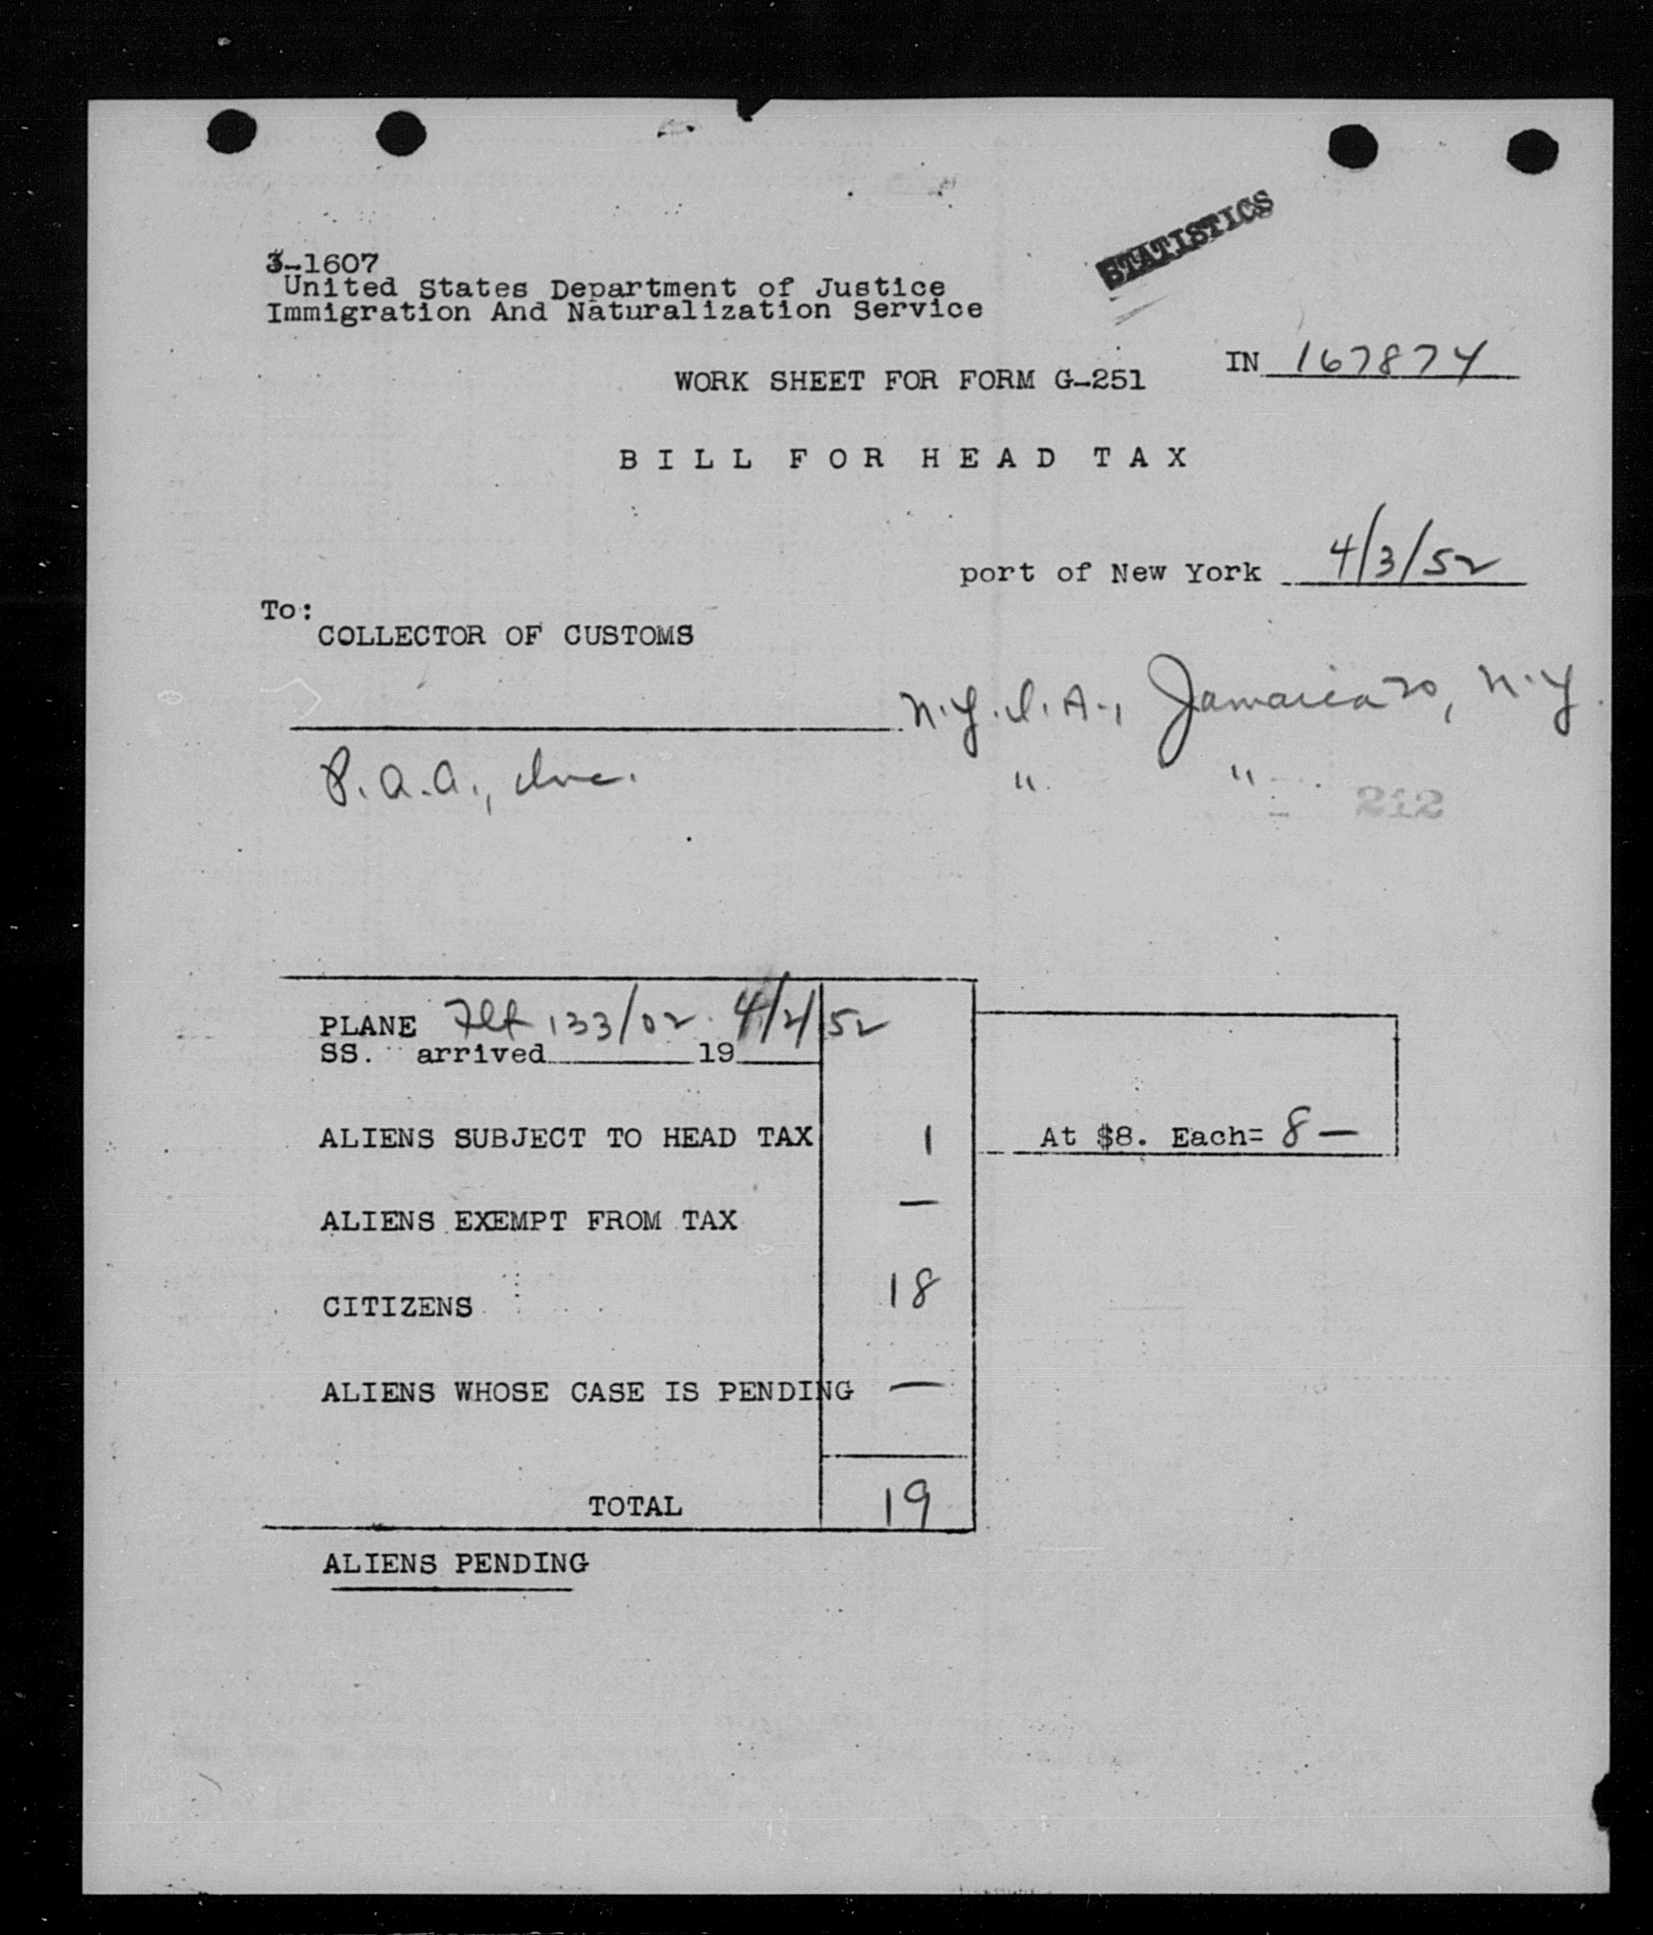 STATISTICS
3-1607
United States Department of Justice
Immigration And Naturalization Service
IN 167874
WORK SHEET FOR FORM G-251
BILL FOR HEAD TAX
port of New York 4/3/52
To:
COLLECTOR OF CUSTOMS
N.Y.I.A., Jamaica 20, N.Y.
P.A.A., Inc. " "
212
PLANE Flt 133/02 4/2/52
SS. arrived 19
ALIENS SUBJECT TO HEAD TAX 1 At $8. Each= 8 —
ALIENS EXEMPT FROM TAX —
CITIZENS 18
ALIENS WHOSE CASE IS PENDING —
TOTAL 19
ALIENS PENDING